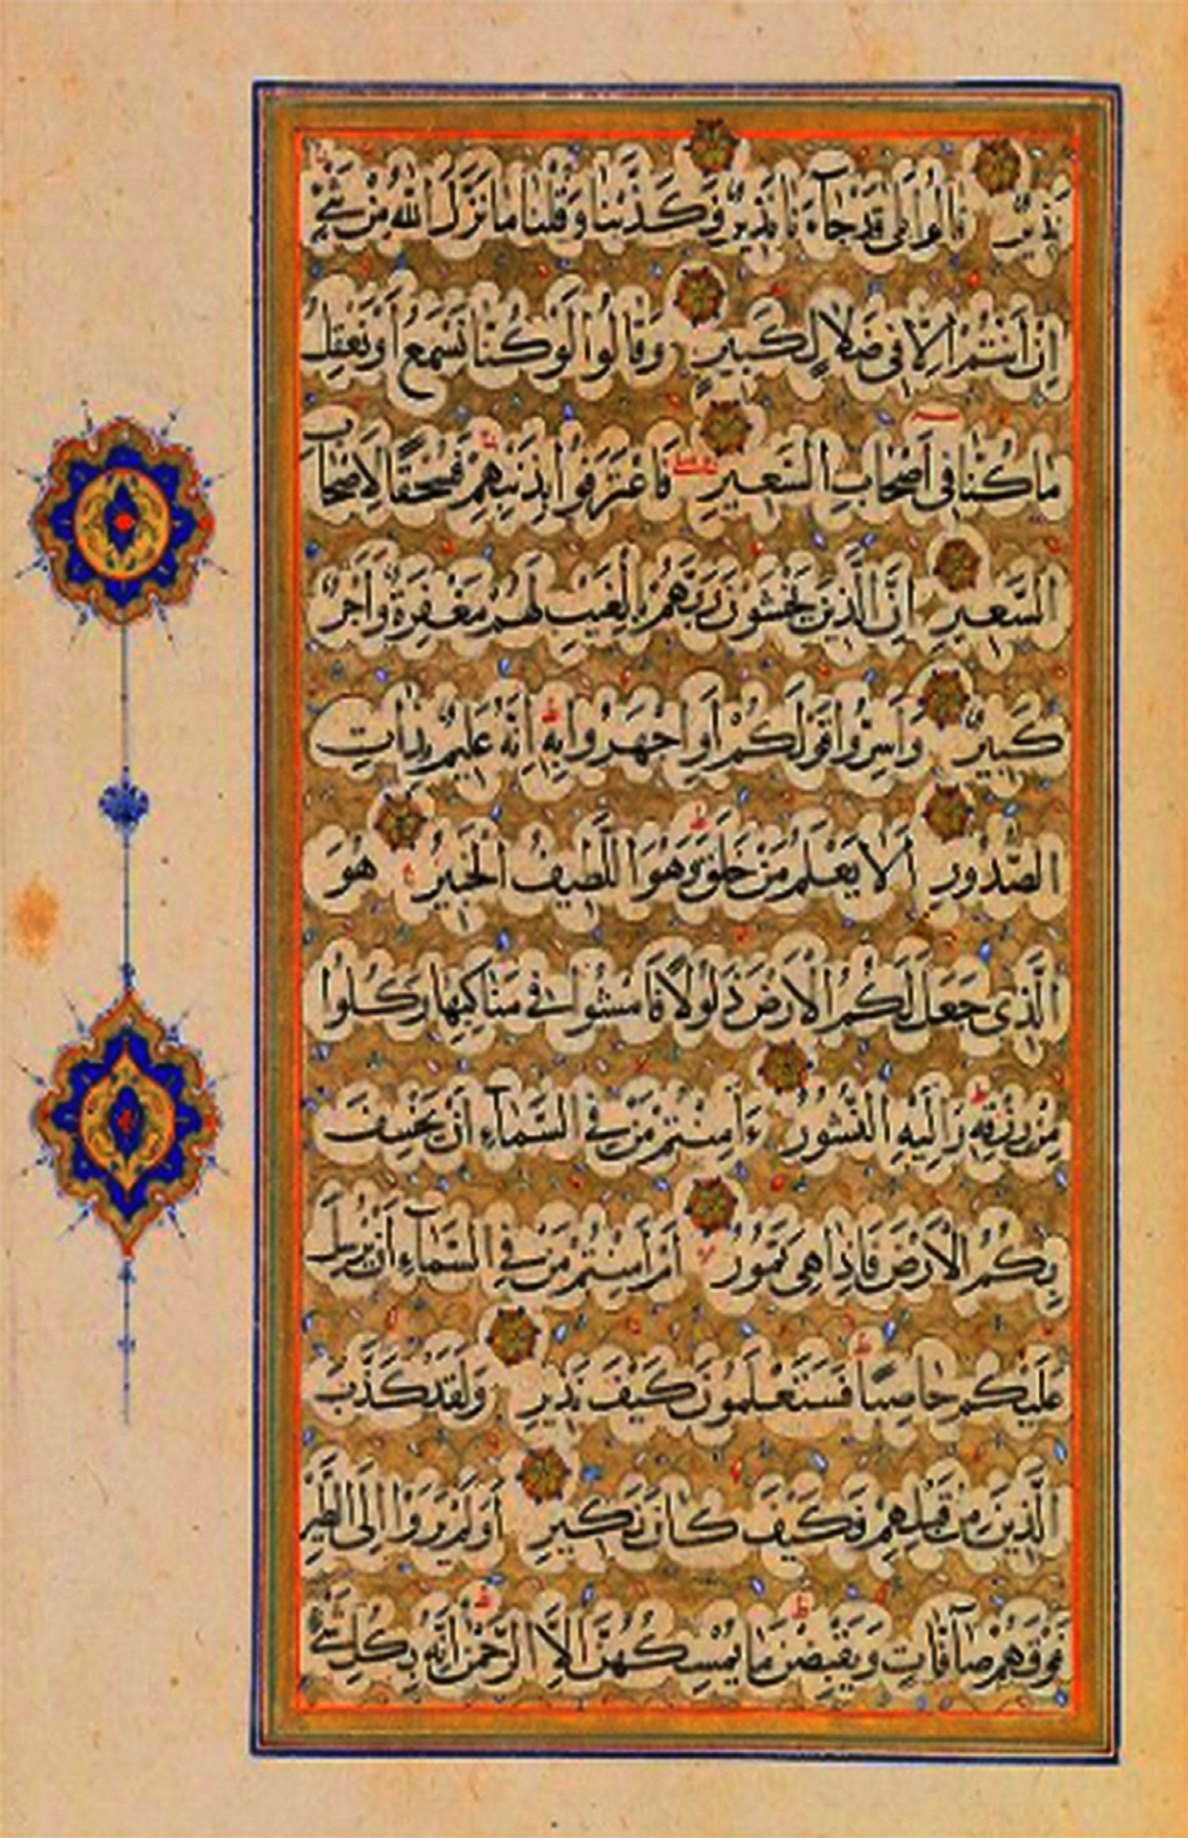 نَذِيرٌ قَالُوا بَلَى قَدْ جَاءَنَا نَذِيرٌ فَكَذَّبْنَا وَقُلْنَا مَا نَزَّلَ اللهُ مِنْ شَيْءٍ
اِنْ اَنْتُمْ اِلَّا فِى ضَلَالٍ كَبِيرٍ وَقَالُوا لَوْ كُنَّا نَسْمَعُ اَوْ نَعْقِلُ
مَا كُنَّا فِى اَصْحَابِ السَّعِيرِ فَاعْتَرَفُوا بِذَنْبِهِمْ فَسُحْقًا لِاَصْحَابِ
السَّعِيرِ اِنَّ الَّذِينَ يَخْشَوْنَ رَبَّهُمْ بِالْغَيْبِ لَهُمْ مَغْفِرَةٌ وَاَجْرٌ
كَبِيرٌ وَاَسِرُّوا قَوْلَكُمْ اَوِ اجْهَرُوا بِهِ اِنَّهُ عَلِيمٌ بِذَاتِ
الصُّدُورِ اَلَا يَعْلَمُ مَنْ خَلَقَ وَهُوَ اللَّطِيفُ الْخَبِيرُ هُوَ
الَّذِى جَعَلَ لَكُمُ الْاَرْضَ ذَلُولًا فَامْشُوا فِى مَنَاكِبِهَا وَكُلُوا
مِنْ رِزْقِهِ وَاِلَيْهِ النُّشُورُ ءَاَمِنْتُمْ مَنْ فِى السَّمَاءِ اَنْ يَخْسِفَ
بِكُمُ الْاَرْضَ فَاِذَا هِىَ تَمُورُ اَمْ اَمِنْتُمْ مَنْ فِى السَّمَاءِ اَنْ يُرْسِلَ
عَلَيْكُمْ حَاصِبًا فَسَتَعْلَمُونَ كَيْفَ نَذِيرِ وَلَقَدْ كَذَّبَ
الَّذِينَ مِنْ قَبْلِهِمْ فَكَيْفَ كَانَ نَكِيرِ اَوَلَمْ يَرَوْا اِلَى الطَّيْرِ
فَوْقَهُمْ صَافَّاتٍ وَيَقْبِضْنَ مَا يُمْسِكُهُنَّ اِلَّا الرَّحْمٰنُ اِنَّهُ بِكُلِّ شَيْءٍ